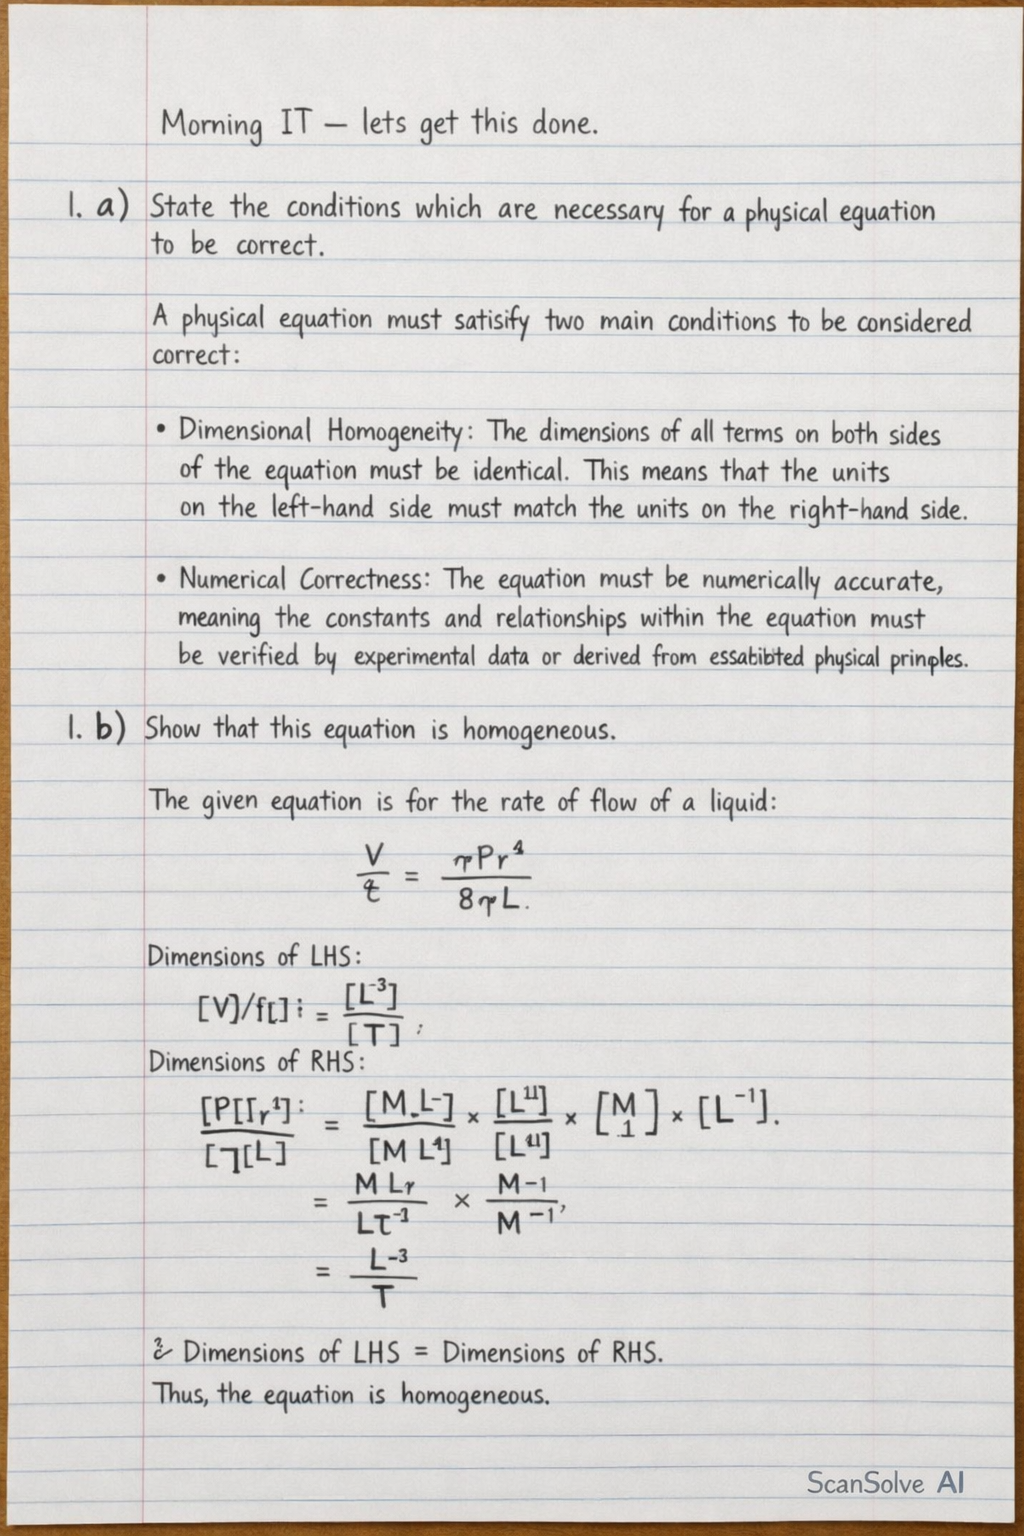 Morning IT — lets get this done.
1. a) State the conditions which are necessary for a physical equation
to be correct.
A physical equation must satisify two main conditions to be considered
correct:
• Dimensional Homogeneity: The dimensions of all terms on both sides
of the equation must be identical. This means that the units
on the left-hand side must match the units on the right-hand side.
• Numerical Correctness: The equation must be numerically accurate,
meaning the constants and relationships within the equation must
be verified by experimental data or derived from physical
1. b) Show that this equation is homogeneous.
The given equation is for the rate of flow of a liquid:
V = Pr⁴
8 L.
Dimensions of LHS:
[V]/ = [L⁻³]
[T] ;
Dimensions of RHS:
= [M L-] × × [M 1] × [L⁻¹].
[L] [M L⁴]
= M L × M-1
M⁻¹,
= L⁻³
T
Dimensions of LHS = Dimensions of RHS.
Thus, the equation is homogeneous.
ScanSolve AI